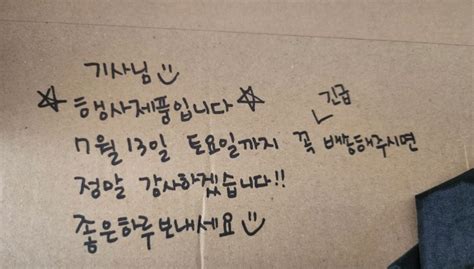 기사님
☆행사제품입니다☆
긴급
7월 13일 토요일까지 꼭 배송해주시면
정말 감사하겠습니다!!
좋은하루보내세요